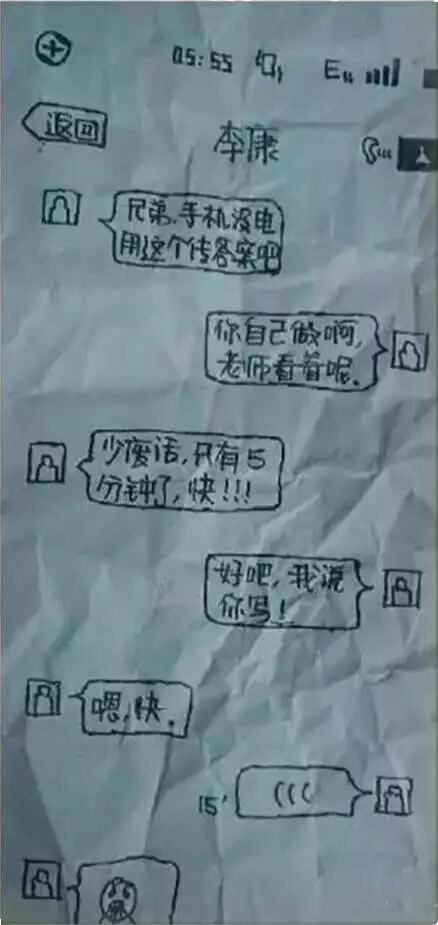 05:55 E
返回
李康
兄弟,手机没电
用这个传答案吧
你自己做啊,
老师看着呢。
少废话,只有5
分钟了,快!!!
好吧,我说
你写!
嗯,快。
15' (((